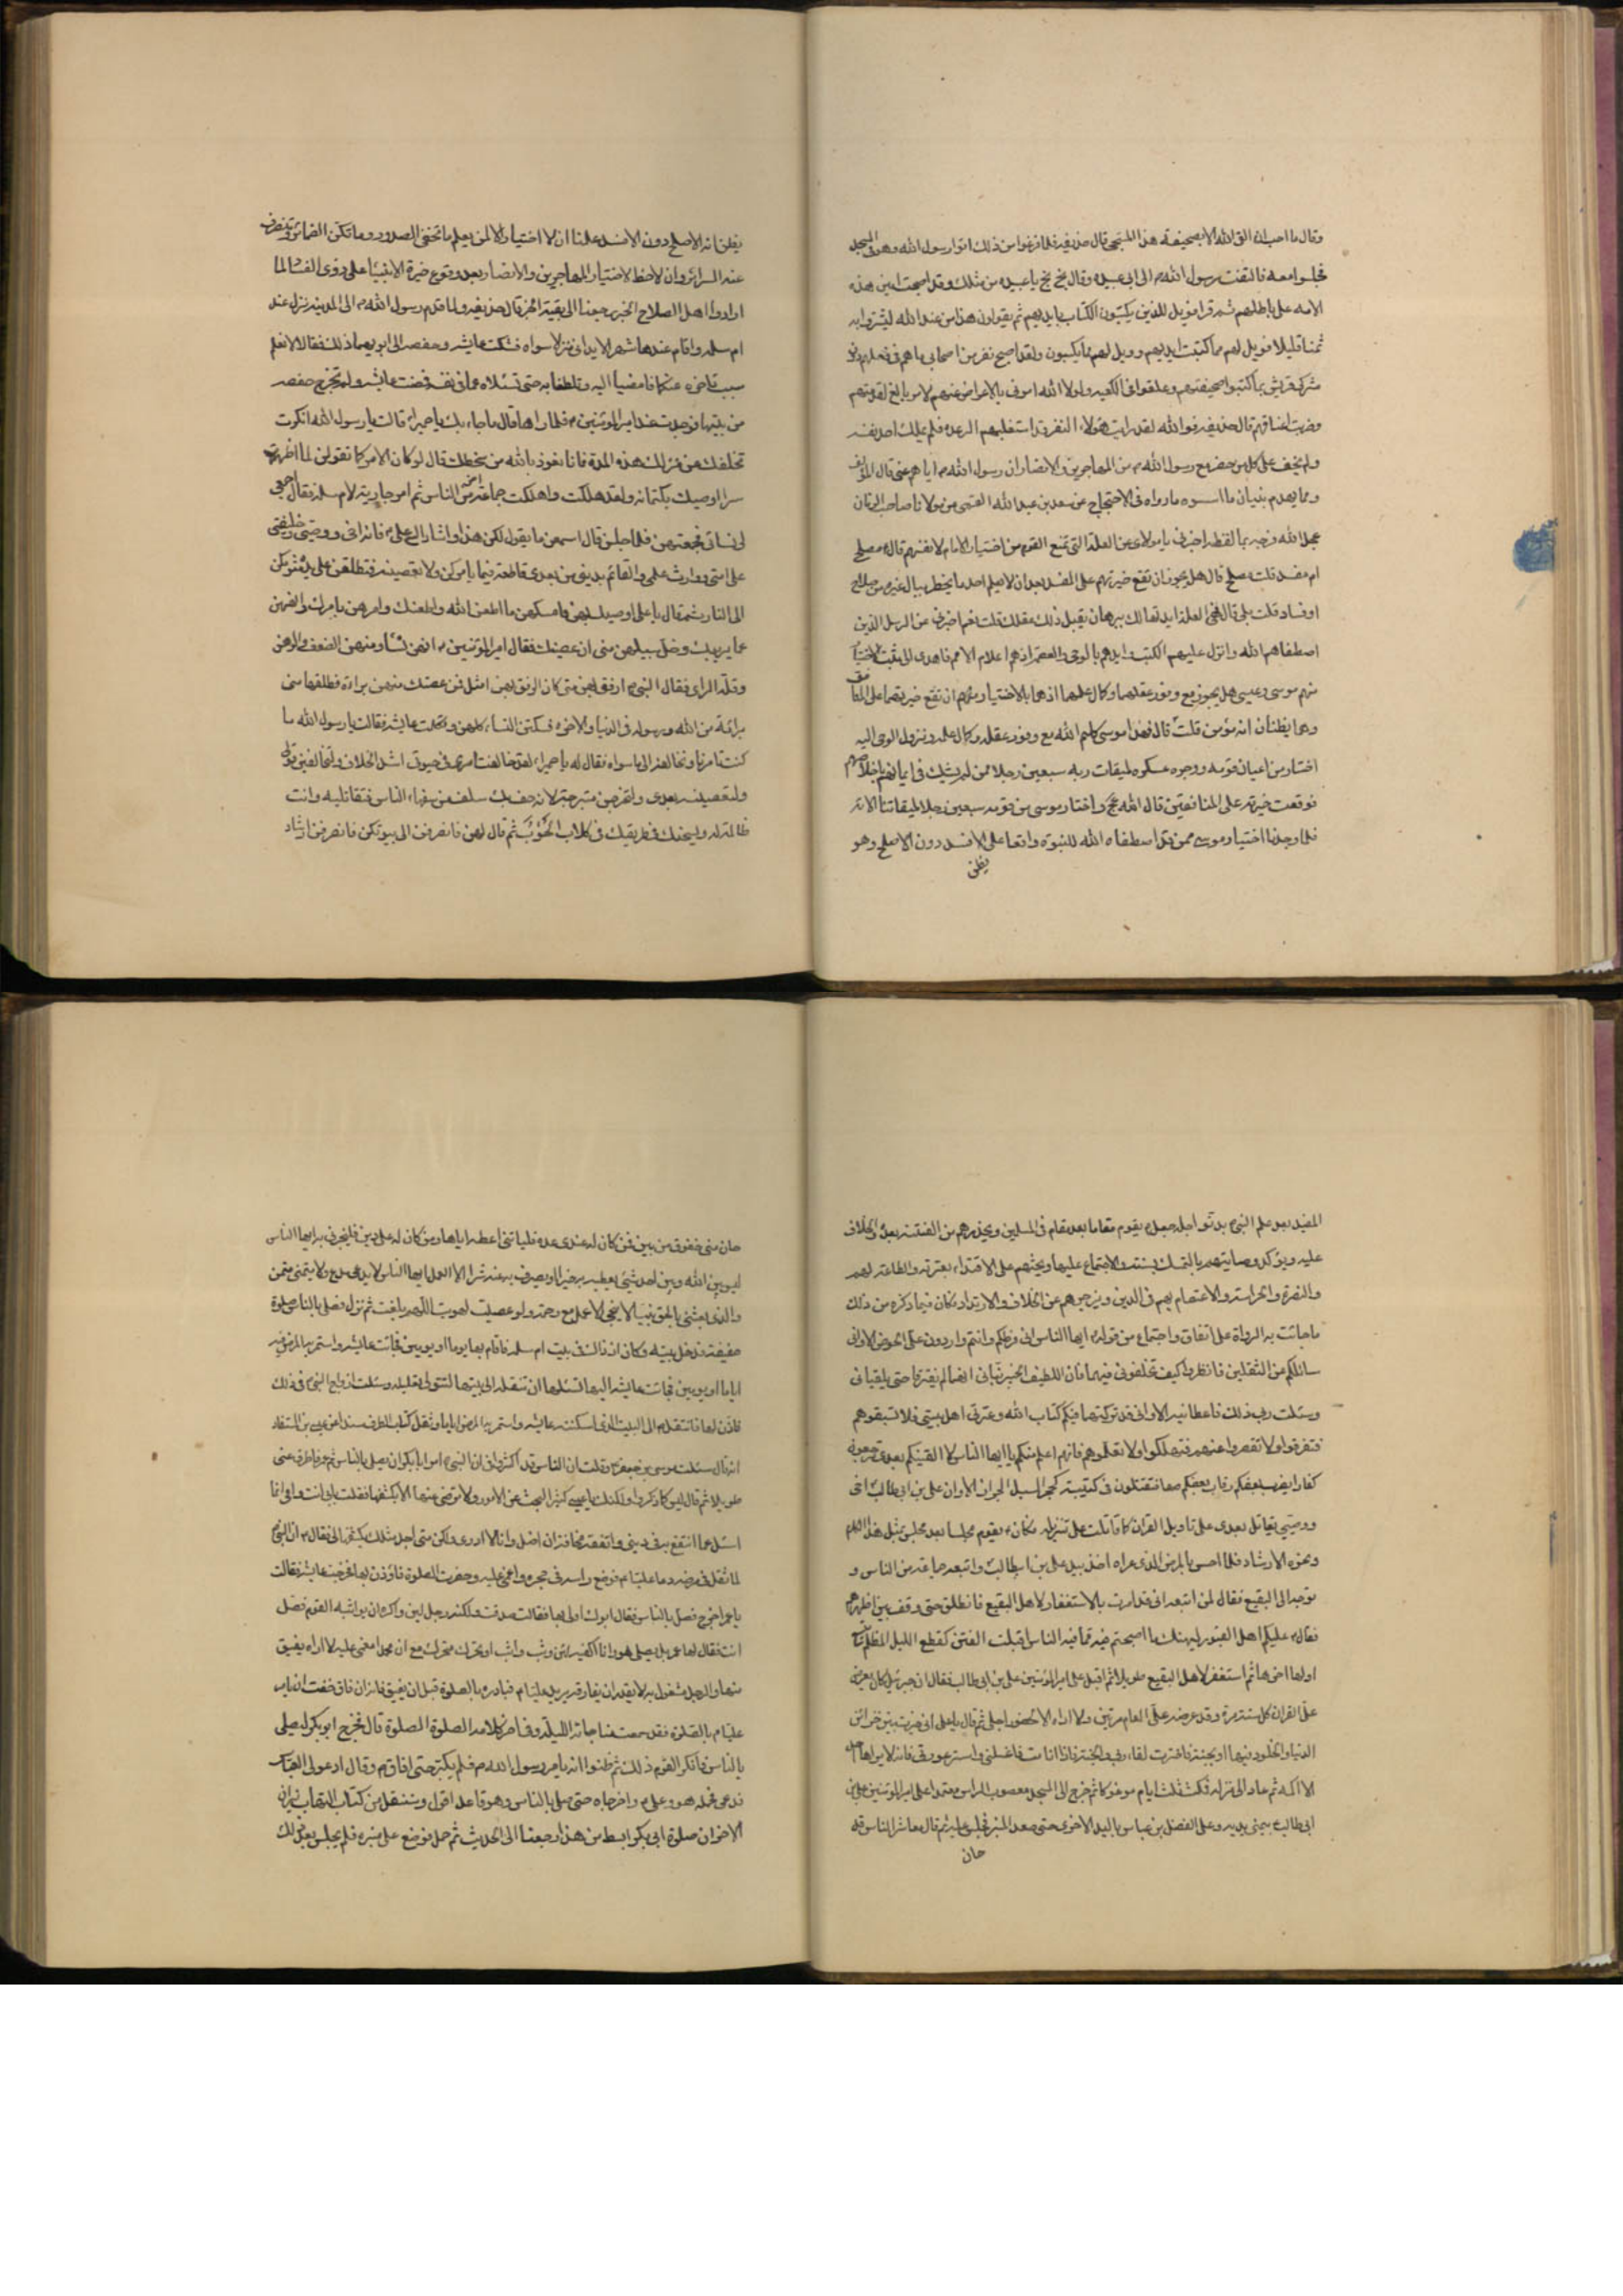 وقال ما احب ان القى الله الا بصحيفة هذا المسجى قال حذيفه فلما فرغوا من ذلك اتوا رسول الله وهو فى المسجد
فجلسوا معه فالتفت رسول الله ص الى ابى عبيده وقال بخ بخ يا عبيده من مثلك وقد اصبحت امين هذه
الامه على باطلهم ثم قرا فويل للذين يكتبون الكتاب بايديهم ثم يقولون هذا من عند الله ليشتروا به
ثمنا قليلا فويل لهم مما كتبت ايديهم وويل لهم مما يكسبون ولقد اصبح نفر من اصحابى ما هم فى فعلهم دون
مشركى قريش لما كتبوا صحيفتهم وعلقوها فى الكعبه ولولا الله امرنى بالاعراض عنهم لامر بالغ لقدمتهم
وضربت اعناقهم قال حذيفه فوالله لقد رايت هؤلاء النفر قد استقلبهم الرعده فلم يملك احد نفسه
ولم يخف على كل من حضر مع رسول الله ص من المهاجرين والانصار ان رسول الله ص اياهم عنى قال المؤلف
ومما يهدم بنيان ما اسسوه ما رواه فى الاحتجاج عن سعد بن عبد الله القمى من مولانا صاحب الزمان
عجل الله فرجه بما لفظه اخبرنى يا مولاى عن العلة التى تمنع القوم من اختيار الامام لانفسهم قال مصلح
ام مفسد قلت مصلح قال هل يجوز ان تقع خيرتهم على المفسد بعد ان لا يعلم احد ما يخطر ببال غيره من صلاح
او فساد قلت بلى قال فهى العلة ايدتها لك ببرهان يقبل ذلك عقلك قلت نعم اخبرنى عن الرسل الذين
اصطفاهم الله وانزل عليهم الكتب وايدهم بالوحى والعصمه اذ هم اعلام الامم فاهدى الى ثبت الاختيار
منهم موسى وعيسى هل يجوز مع وفور عقلهما وكمال علمهما اذ هما بالاختيار ان تقع خيرتهما على المنافق
وهما يظنان انه مؤمن قلت لا قال فهذا موسى كليم الله مع وفور عقله وكمال علمه ونزول الوحى اليه
اختار من اعيان قومه ووجوه عسكره لميقات ربه سبعين رجلا ممن لم يشك فى ايمانهم واخلاصهم
فوقعت خيرته على المنافقين قال الله عج واختار موسى من قومه سبعين رجلا لميقاتنا الآيه
فلما وجدنا اختيار موسى ممن قد اصطفاه الله للنبوة واقعا على الافسد دون الاصلح وهو
يظن
يظن انه الاصلح دون الافسد علمنا ان لا اختيار الا لمن يعلم ما تخفى الصدور وما تكن الضمائر وتنصرف
عنه السرائر وان لا خطر لاختيار المهاجرين والانصار بعد وقوع خيرة الانبيا على ذوى الفساد لما
ارادوا اهل الصلاح الخبر رجعنا الى بقية الخبر قال حذيفه ولما قدم رسول الله ص الى المدينه نزل عند
ام سلمه واقام عندها شهرا لا يدانى منزلا سواه فشكت عايشه وحفصه الى ابويهما ذلك فقالا لا نعلم
سبب تاخره عنكما فامضيا اليه وتلطفا به حتى تسئلاه عما فى نفسه فمضت عايشه ولم تخرج حفصه
من بيتها فوجدت عنده امير المؤمنين ع فلما راها قال ما جاء بك يا حميراء قالت يا رسول الله انكرت
تخلفك عن منزلك هذه المدة فانا نعوذ بالله من سخطك قال لو كان الامر كما تقولين لما اظهرت
سرا اوصيتك بكتمانه ولقد هلكت واهلكت جماعة من الناس ثم امر جارية لام سلمه فقال اجمعى
لى نسائى فجمعتهن فلما جلسن قال اسمعن ما يقول لكن هذا واشار الى على ع فانه اخى ووصيى وخليفتى
على امتى ووارث علمى والقائم بدينى من بعدى فاطعنه فيما يامركن ولا تعصينه فتطلقن على يديه
الى النار ثم قال يا على اوصيك بهن فامسكهن ما اطعن الله واطعنك وامرهن بامرك وانههن
عما يريبك وخل سبيلهن متى ان عصينك فقال امير المؤمنين ع انهن نساء ومنهن الضعف والوهن
وقلة الراى فقال النبى ص ارفق بهن متى كان الرفق بهن امثل فمن عصتك منهن براءة فطلقها منى
براءة من الله ورسوله فى الدنيا والاخرة فسكتن النساء كلهن وتكلمت عايشه فقالت يا رسول الله ما
كنت تامرنا ونخالفه الى ما سواه فقال لها يا حميراء لقد خالفت امرى فى حيوتى اشد الخلاف ولتخالفين قولى
ولتعصينه بعدى ولتخرجن متبرجة قد حف بك سلف من سفهاء الناس فتقاتليه وانت
ظالمة له ولتنبحنك فى طريقك كلاب الحوئب ثم قال لهن فانصرفن الى بيوتكن فانصرفن ارشاد
المفيد بعد علم النبى ص بدنو اجله جعل يقوم مقاما بعد مقام فى المسلمين ويحذرهم من الفتنه بعده والخلاف
عليه ويؤكد وصايتهم بالتمسك بسنته والاجتماع عليها ويحثهم على الاقتداء بعترته والطاعه لهم
والنصرة والحراسه والاعتصام بهم فى الدين ويزجرهم عن الخلاف والارتداد فكان فيما ذكره من ذلك
ما جائت به الرواة على اتفاق واجتماع من قوله ايها الناس انى فرطكم وانتم واردون على الحوض الا وانى
سائلكم عن الثقلين فانظروا كيف تخلفونى فيهما فان اللطيف الخبير نبانى انهما لم يفترقا حتى يلقيانى
وسئلت ربى ذلك فاعطانيه الا وانى قد تركتهما فيكم كتاب الله وعترتى اهل بيتى فلا تسبقوهم
فتفرقوا ولا تقصروا عنهم فتهلكوا ولا تعلموهم فانهم اعلم منكم يا ايها الناس لا الفينكم بعدى ترجعون
كفارا يضرب بعضكم رقاب بعض فتقتتلون فى كتيبة كمجر السيل الجرار الا وان على بن ابى طالب اخى
ووصيى يقاتل بعدى على تاويل القران كما قاتلت على تنزيله فكان ع يقوم مجلسا بعد مجلس بمثل هذا الكلام
ونحوه الارشاد فلما احس بالمرض الذى عراه اخذ بيد على بن ابيطالب واتبعه جماعة من الناس و
توجه الى البقيع فقال لمن اتبعه انى قد امرت بالاستغفار لاهل البقيع فانطلق حتى وقف بين اظهرهم
فقال ع عليكم اهل القبور ليهنئكم ما اصبحتم فيه مما فيه الناس اقبلت الفتن كقطع الليل المظلم تتبع
اولها اخرها ثم استغفر لاهل البقيع طويلا ثم اقبل على امير المؤمنين على بن ابى طالب فقال ان جبرئيل كان يعرض
على القران كل سنة مرة وقد عرضه على العام مرتين ولا اراه الا لحضور اجلى ثم قال يا على انى خيرت بين خزائن
الدنيا والخلود فيها او الجنة فاخترت لقاء ربى والجنة فاذا انا مت فاغسلنى واستر عورتى فانه لا يراها احد
الا اكمه ثم عاد الى منزله فمكث ثلث ايام موعوكا ثم خرج الى المسجد معصوب الراس معتمدا على امير المؤمنين على بن
ابى طالب بيمنى يديه وعلى الفضل بن عباس باليد الاخرى حتى صعد المنبر فجلس عليه ثم قال معاشر الناس قد
حان
حان منى خفوق من بين فمن كان له عندى عدة فلياتنى اعطه اياها ومن كان له على دين فليخبرنى به ايها الناس
ليس بين الله وبين احد شئ يعطيه به خيرا او يصرف به عنه شرا الا العمل ايها الناس لا يدعى مدع ولا يتمنى متمن
والذى بعثنى بالحق نبيا لا ينجى الا عمل مع رحمة ولو عصيت لهويت اللهم بلغت ثم نزل فصلى بالناس صلوة
خفيفة ودخل بيته وكان اذ ذاك فى بيت ام سلمه فاقام بها يوما او يومين فجائت عايشه واستمر به المرض فيه
اياما او يومين فجائت عايشه اليها تسئلها ان تنقله الى بيتها لتتولى تعليله وسئلت ازواج النبى فى ذلك
فاذن لها فانتقل ص الى البيت الذى اسكنه عايشه واستمر به المرض اياما وثقل كتاب الطرف مسندا عن عيسى بن المستفاد
انه قال سئلت موسى بن جعفر ع وقلت ان الناس قد اكثروا فى ان النبى ص امر ابا بكر ان يصلى بالناس ثم عمر فاطرق عنى
طويلا ثم قال ليس كما ذكروا ولكنك يا عيسى كثير البحث عن الامور ولا ترضى عنها الا بكشفها فقلت بابى انت وامى انما
اسئل عما انتفع به فى دينى واتفقه مخافة ان اضل وانا لا ادرى ولكن متى اجد مثلك يكشفها لى فقال ان النبى
لما ثقل فى مرضه دعا عليا ع فوضع راسه فى حجره واغمى عليه وحضرت الصلوة فاوذن بها فخرجت عايشه فقالت
يا عمر اخرج فصل بالناس فقال ابوك اولى بها فقالت صدقت ولكنه رجل لين واكره ان يواثبه القوم فصل
انت فقال لها عمر بل يصلى هو وانا اكفيه ان وثب واثب او تحرك متحرك مع ان محمدا مغمى عليه لا اراه يفيق
منها والرجل مشغول به لا يقدر ان يفارقه يريد عليا ع فبادره بالصلوة قبل ان يفيق فانه ان فاق خفت ان يامر
عليا ع بالصلوة فقد سمعت مناجاته الليلة وفى اخر كلامه الصلوة الصلوة قال فخرج ابو بكر ليصلى
بالناس فانكر القوم ذلك ثم ظنوا انه بامر رسول الله ص فلم يكبر حتى افاق ص وقال ادعوا لى العباس
فدعى فحمله هو وعلى ع واخرجاه حتى صلى بالناس وهو قاعد اقول وسننقل من كتاب التهاب نيران
الاحزان صلوة ابى بكر ابسط من هذا رجعنا الى الحديث ثم حمل فوضع على منبره فلم يجلس بعد ذلك